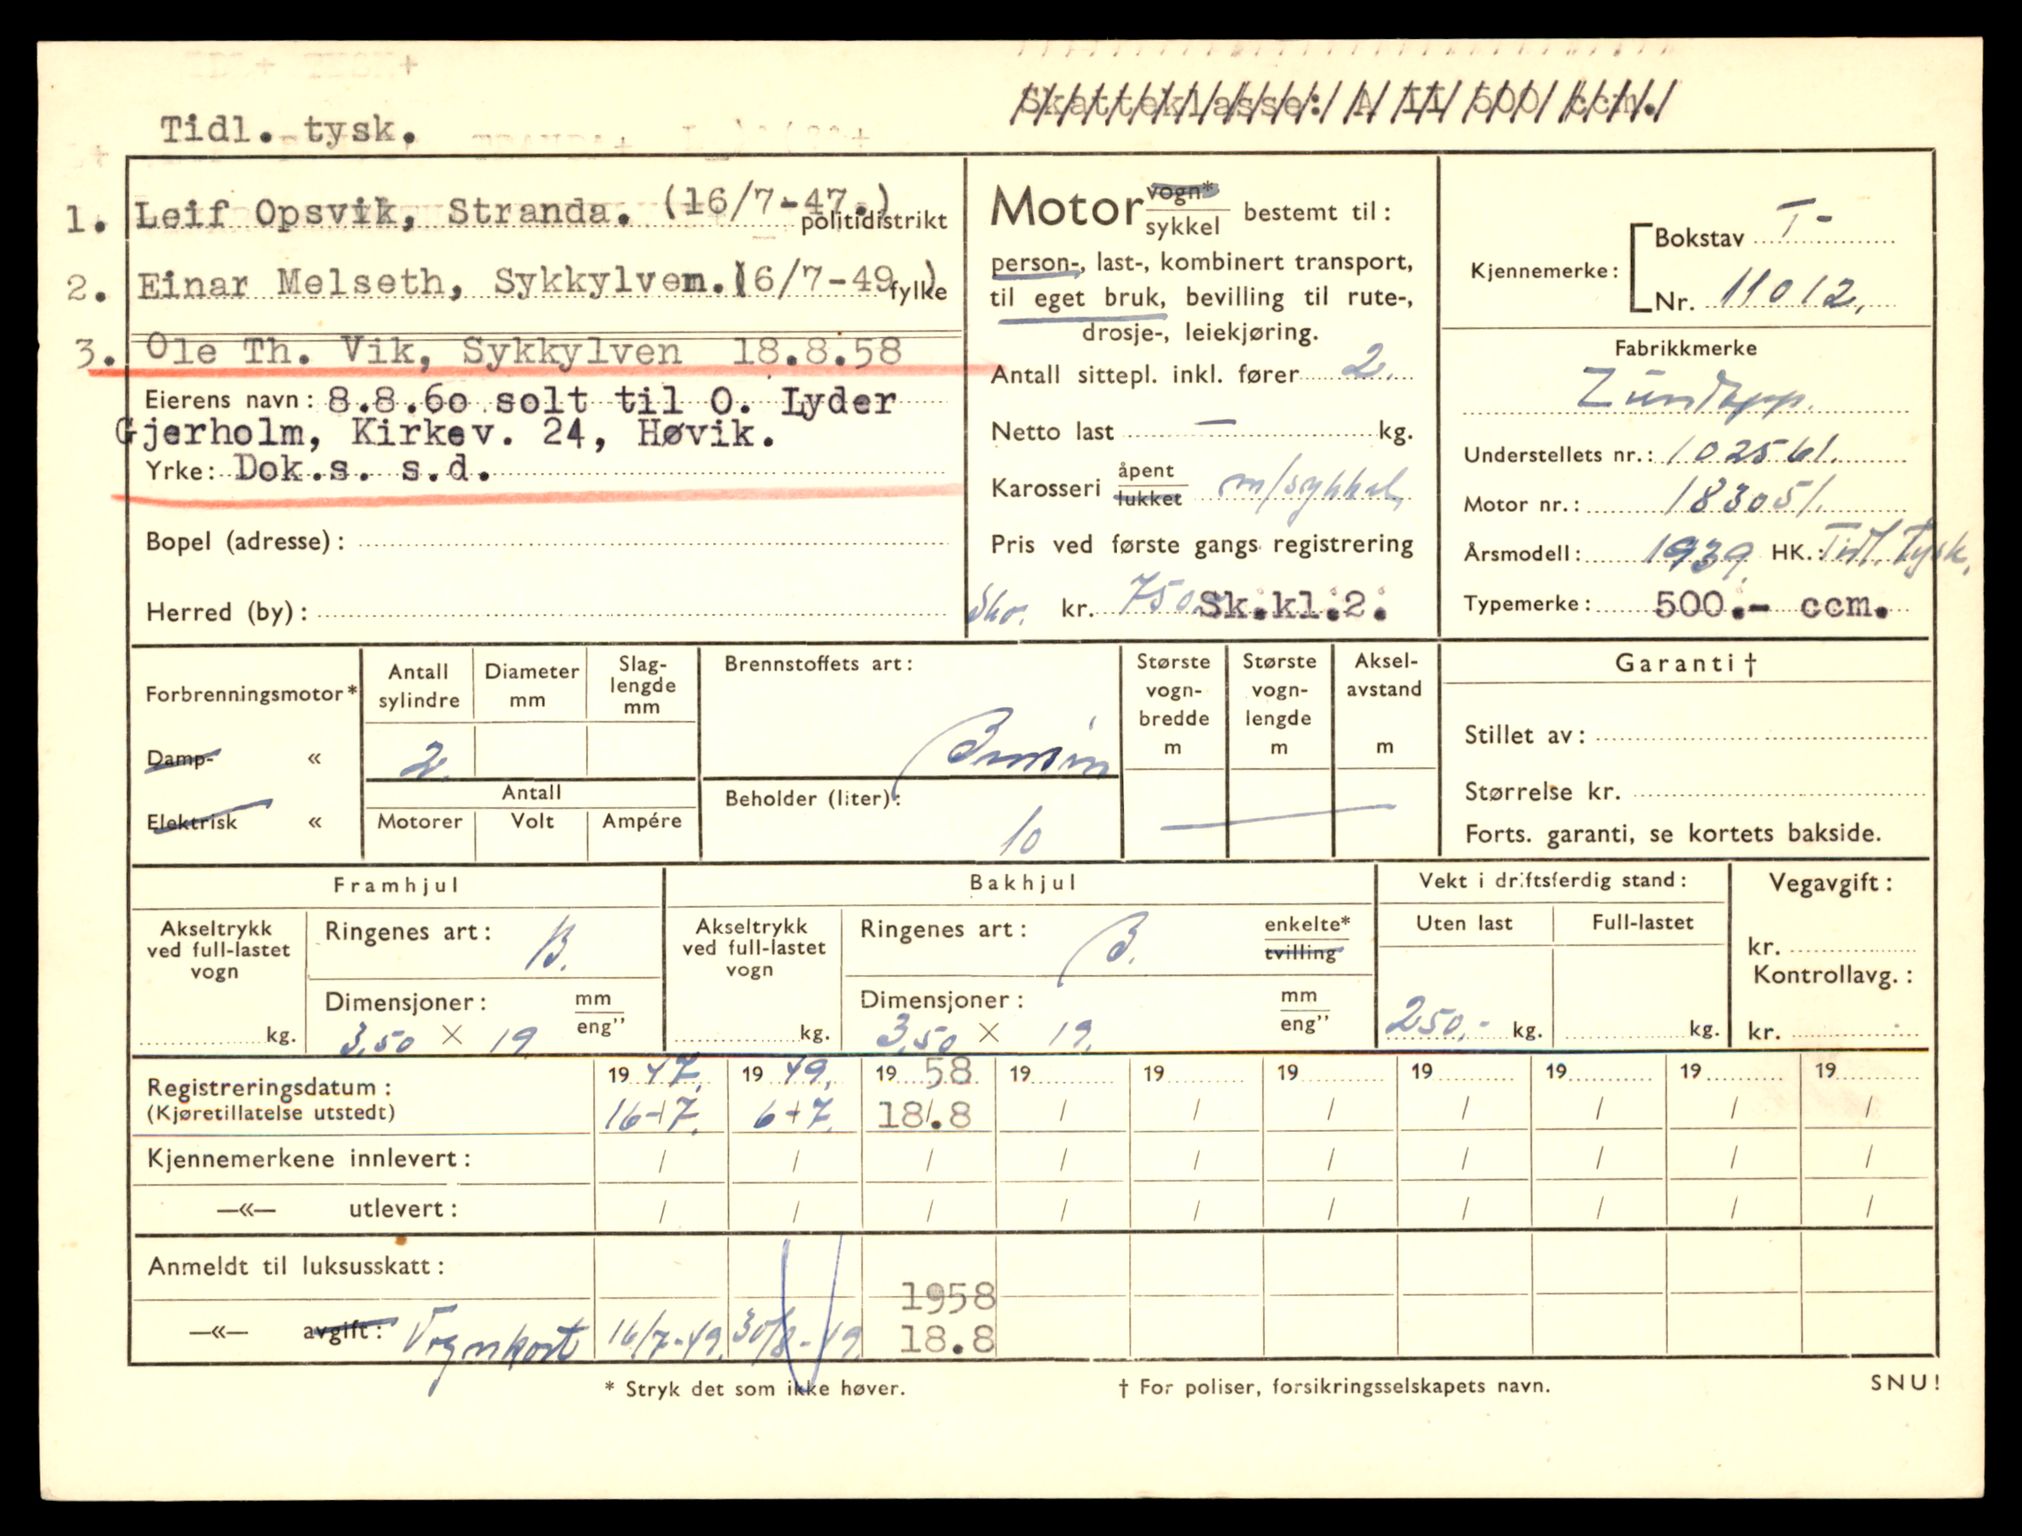 Skatteklasse: A II 500 ccm.
Tidl. tysk.
1. Leif Opsvik, Stranda. (16/7-47.)
politidistrikt
2. Einar Melseth, Sykkylven. (6/7-49)
fylke
3. Ole Th. Vik, Sykkylven 18.8.58
Eierens navn: 8.8.60 solt til O. Lyder
Gjerholm, Kirkev. 24, Høvik.
Yrke: Dok.s. s.d.
Bopel (adresse):
Herred (by):
Motor vogn*
sykkel bestemt til:
person-, last-, kombinert transport,
til eget bruk, bevilling til rute-,
drosje-, leiekjøring.
Antall sittepl. inkl. fører 2.
Netto last — kg.
Karosseri åpent
lukket m/sykkel,
Pris ved første gangs registrering
kr. 750 Sk.kl.2.
Kjennemerke: Bokstav T-
Nr. 11012,
Fabrikkmerke
Zündapp.
Understellets nr.: 102561.
Motor nr.: 183051.
Årsmodell: 1939. HK.: Tidl. tysk.
Typemerke: 500.- ccm.
Forbrenningsmotor*
Damp- «
Elektrisk «
Antall sylindre
2.
Diameter mm
Slag-
lengde
mm
Antall
Motorer Volt Ampére
Brennstoffets art:
Bensin
Beholder (liter):
10
Største
vogn-
bredde
m
Største
vogn-
lengde
m
Aksel-
avstand
m
—
Garanti †
Stillet av:
Størrelse kr.
Forts. garanti, se kortets bakside.
Framhjul
Akseltrykk
ved full-lastet
vogn
kg.
Ringenes art: B.
Dimensjoner: mm
eng"
3.50 × 19.
Bakhjul
Akseltrykk
ved full-lastet
vogn
kg.
Ringenes art: B. enkelte*
tvilling
Dimensjoner: mm
eng"
3.50 × 19.
Vekt i driftsferdig stand:
Uten last Full-lastet
250,- kg. kg.
Vegavgift:
kr.
Kontrollavg.:
kr.
Registreringsdatum: 19 47. 19 49. 19 58 19 19 19 19 19 19 19
(Kjøretillatelse utstedt) 16-7. 6-7. 18.8 / / / / / / /
Kjennemerkene innlevert: / / / / / / / / / /
—«— utlevert: / / / / / / / / / /
Anmeldt til luksusskatt:
1958
—«— avgift: Vognkort 16/7-49. 30/8-49. 18.8
* Stryk det som ikke høver.
† For poliser, forsikringsselskapets navn.
SNU!